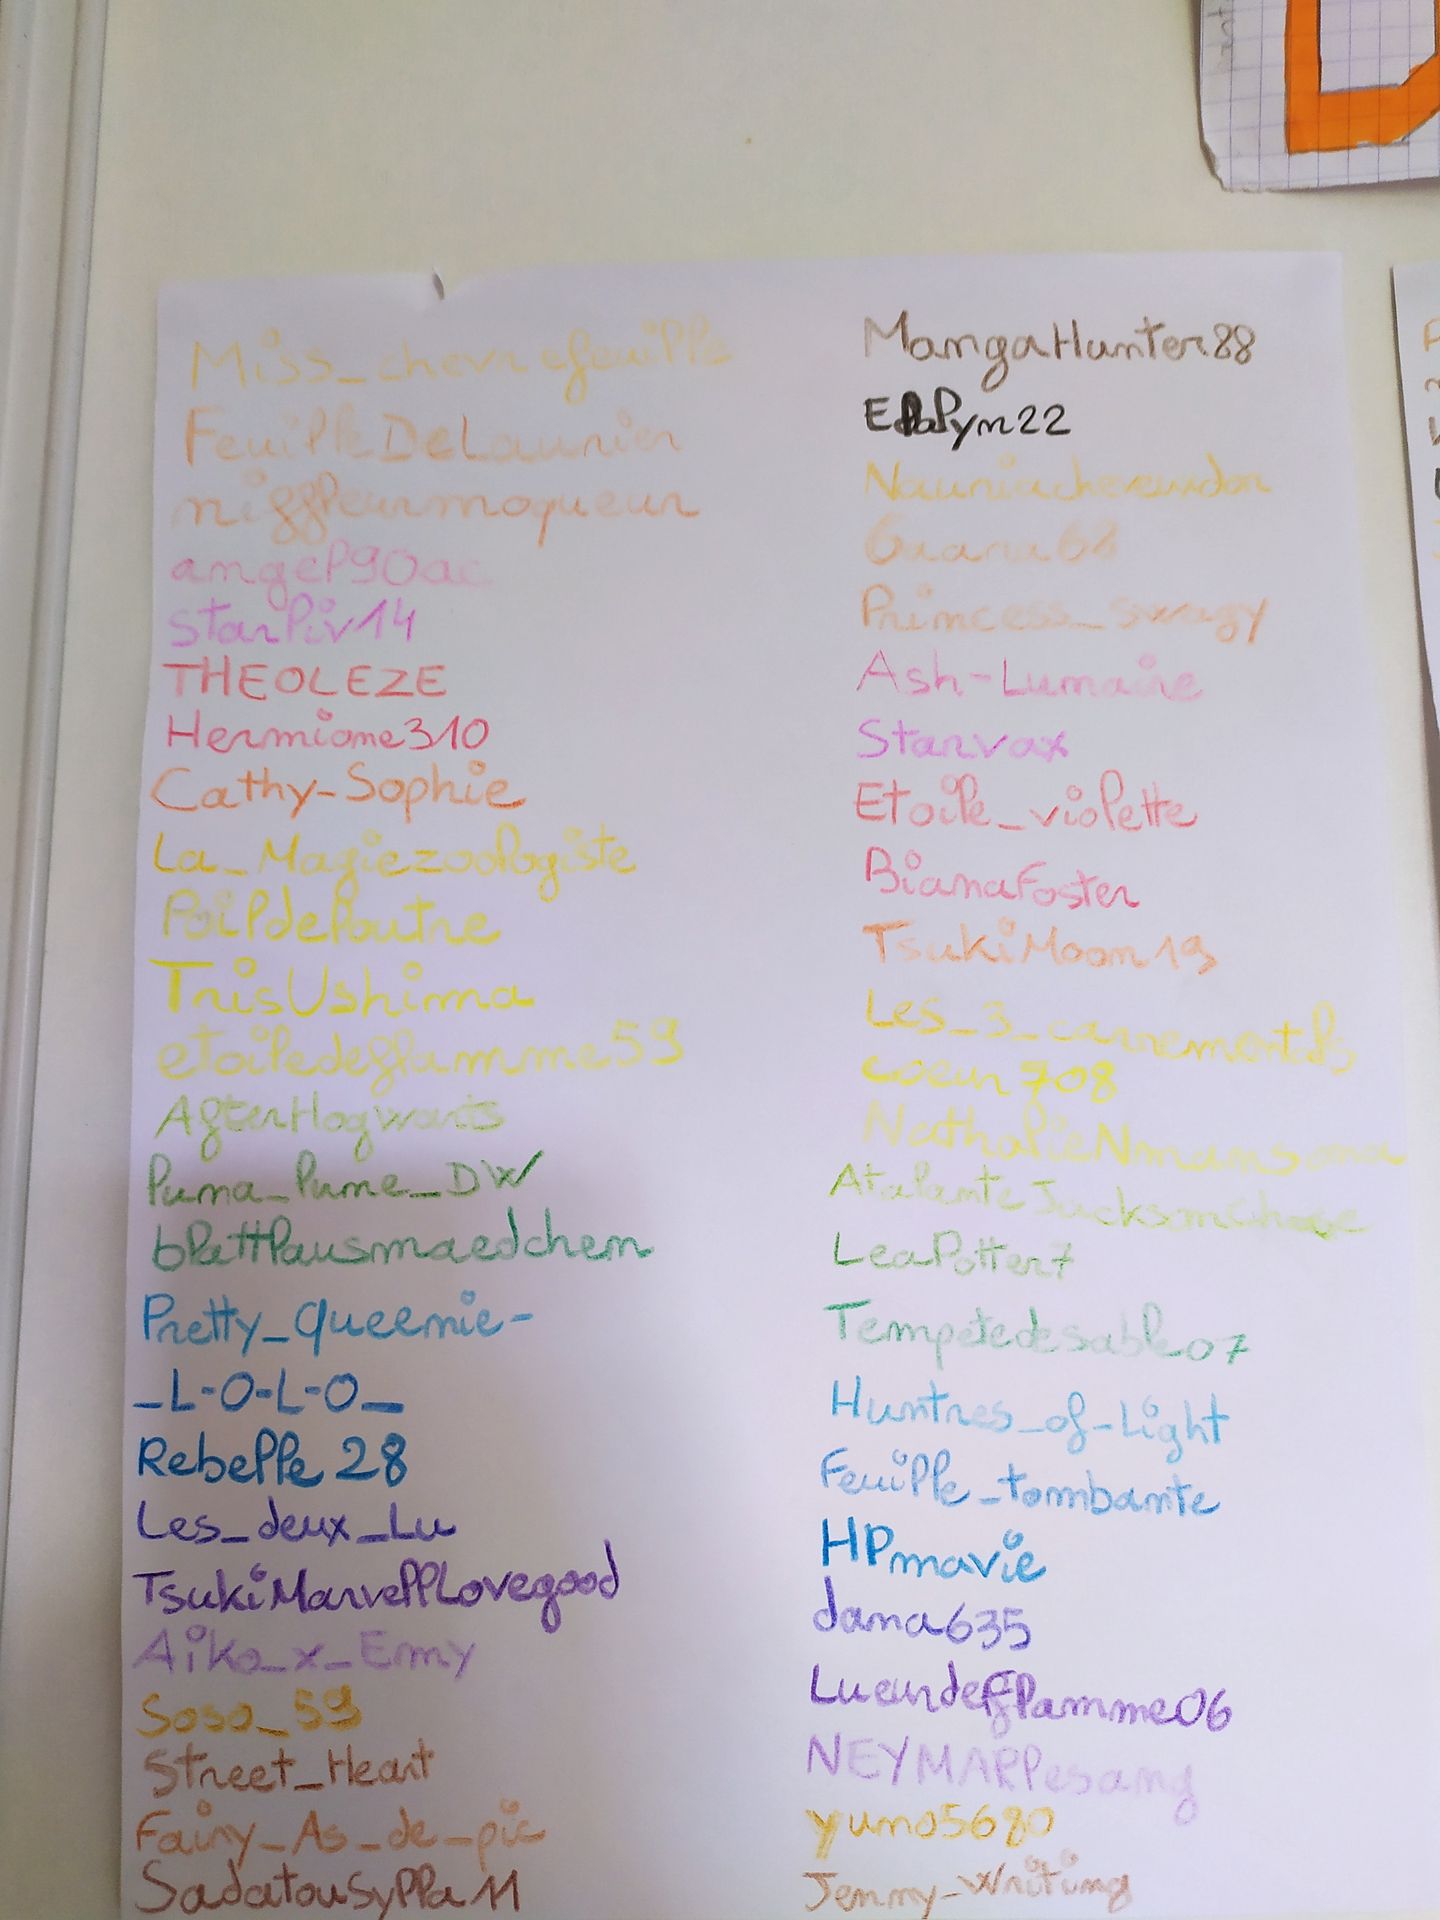 Miss_chevrefeuille
FeuilleDeLaurier
niffleurmoqueur
angel90ac
starliv14
THEOLEZE
Hermione310
Cathy-Sophie
La_Magiezoologiste
Poildeloutre
TrisUshima
etoiledeflamme59
AfterHogwarts
Puma_Pume_DW
blattlausmaedchen
Pretty_queenie-
_L-O-L-O_
Rebelle28
Les_deux_Lu
TsukiMarvellLovegood
Aiko_x_Emy
Soso_59
Street_Heart
Fairy_As_de_pic
SadatouSylla11
MangaHunter88
EllaPym22
Nauriacheveuxdor
Gaara68
Princess_swagy
Ash-Lumaire
Starvax
Etoile_violette
BianaFoster
TsukiMoon19
Les_3_carrementals
coeur708
AtalanteJacksonChase
LeaPotter7
Tempetedesable07
Huntres_of-Light
Feuille_tombante
HPmavie
dana635
Lueurdeflamme06
NEYMARlesang
yuno5680
Jenny-Writing